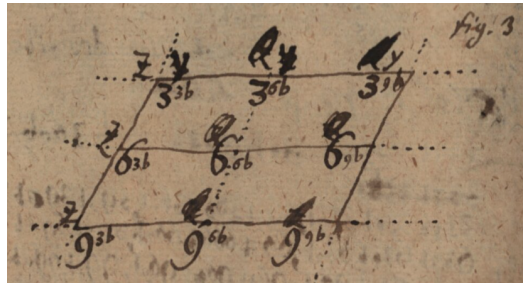 fig. 3
z y y y
3 3b 3 6b 3 9b
z
6 3b 6 6b 6 9b
z
9 3b 9 6b 9 9b